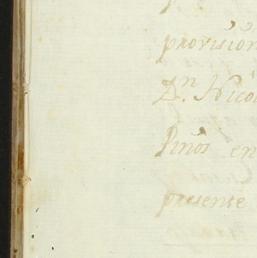 provision
Dn. Nico
Pinos en
presente